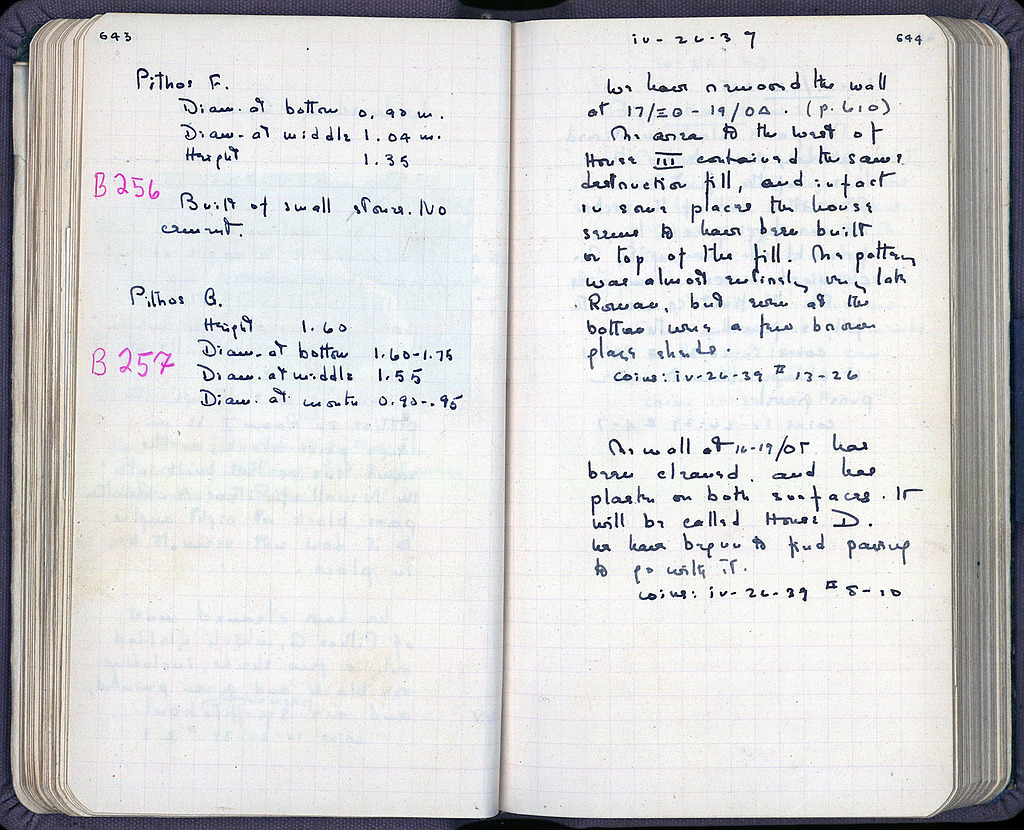 643
Pithos F.
Diam. at bottom 0.90 m.
Diam. at middle 1.04 m.
Height 1.35
B 256
Built of small stones. No
cement.
Pithos G.
Height 1.60
Diam. at bottom 1.60-1.75
B 257
Diam. at middle 1.55
Diam. at mouth 0.90-.95
iv-26-39
644
We have removed the wall
at 17/ΞΟ - 19/ΟΔ. (p. 610)
The area to the west of
House III contained the same
destruction fill, and in fact
in some places the house
seems to have been built
on top of the fill. The pottery
was almost entirely very late
Roman, but even at the
bottom were a few brown
glaze sherds.
coins: iv-26-39 # 13-26
The wall at 16-19/ΟΓ has
been cleaned, and has
plaster on both surfaces. It
will be called House D.
We have begun to find paving
to go with it.
coins: iv-26-39 # 8-10